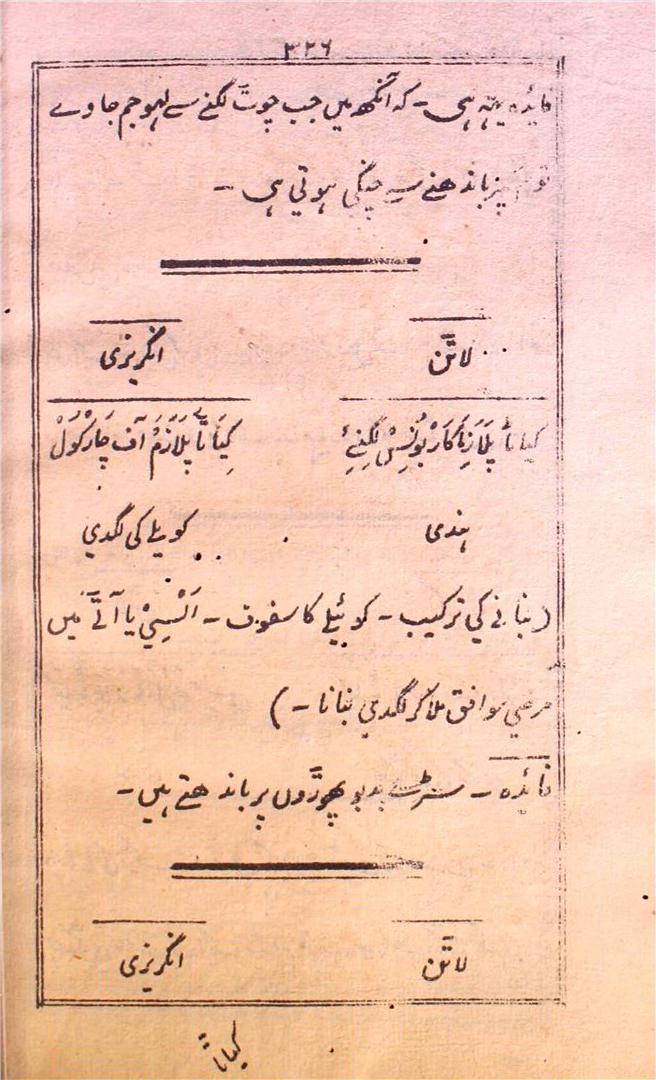 ۳۲۶
فایٔدہ یہہ ہی - کہ آنکھہ میں جب چوٹ لگنے سے لہو جم جاوے
تو چیز باندھنے سے چنگی ہوتی ہی -
لاتن
انگریزی
کیاتا پلازما کاربونس لگنئِے
کِیَاتَا پلازَمْ آف چَارْکُولْ
ہندی
کویلے کی لگدي
( بنانے کی ترکیب - کوئیلے کا سفوف - اَلْسِيْ یا آتے میں
مرضي موافق ملا کر لگدي بنانا - )
فایٔدہ - سڑے بدبو پھوڑوں پر باندھتے ہیں -
لاتن
انگریزی
کیاتا